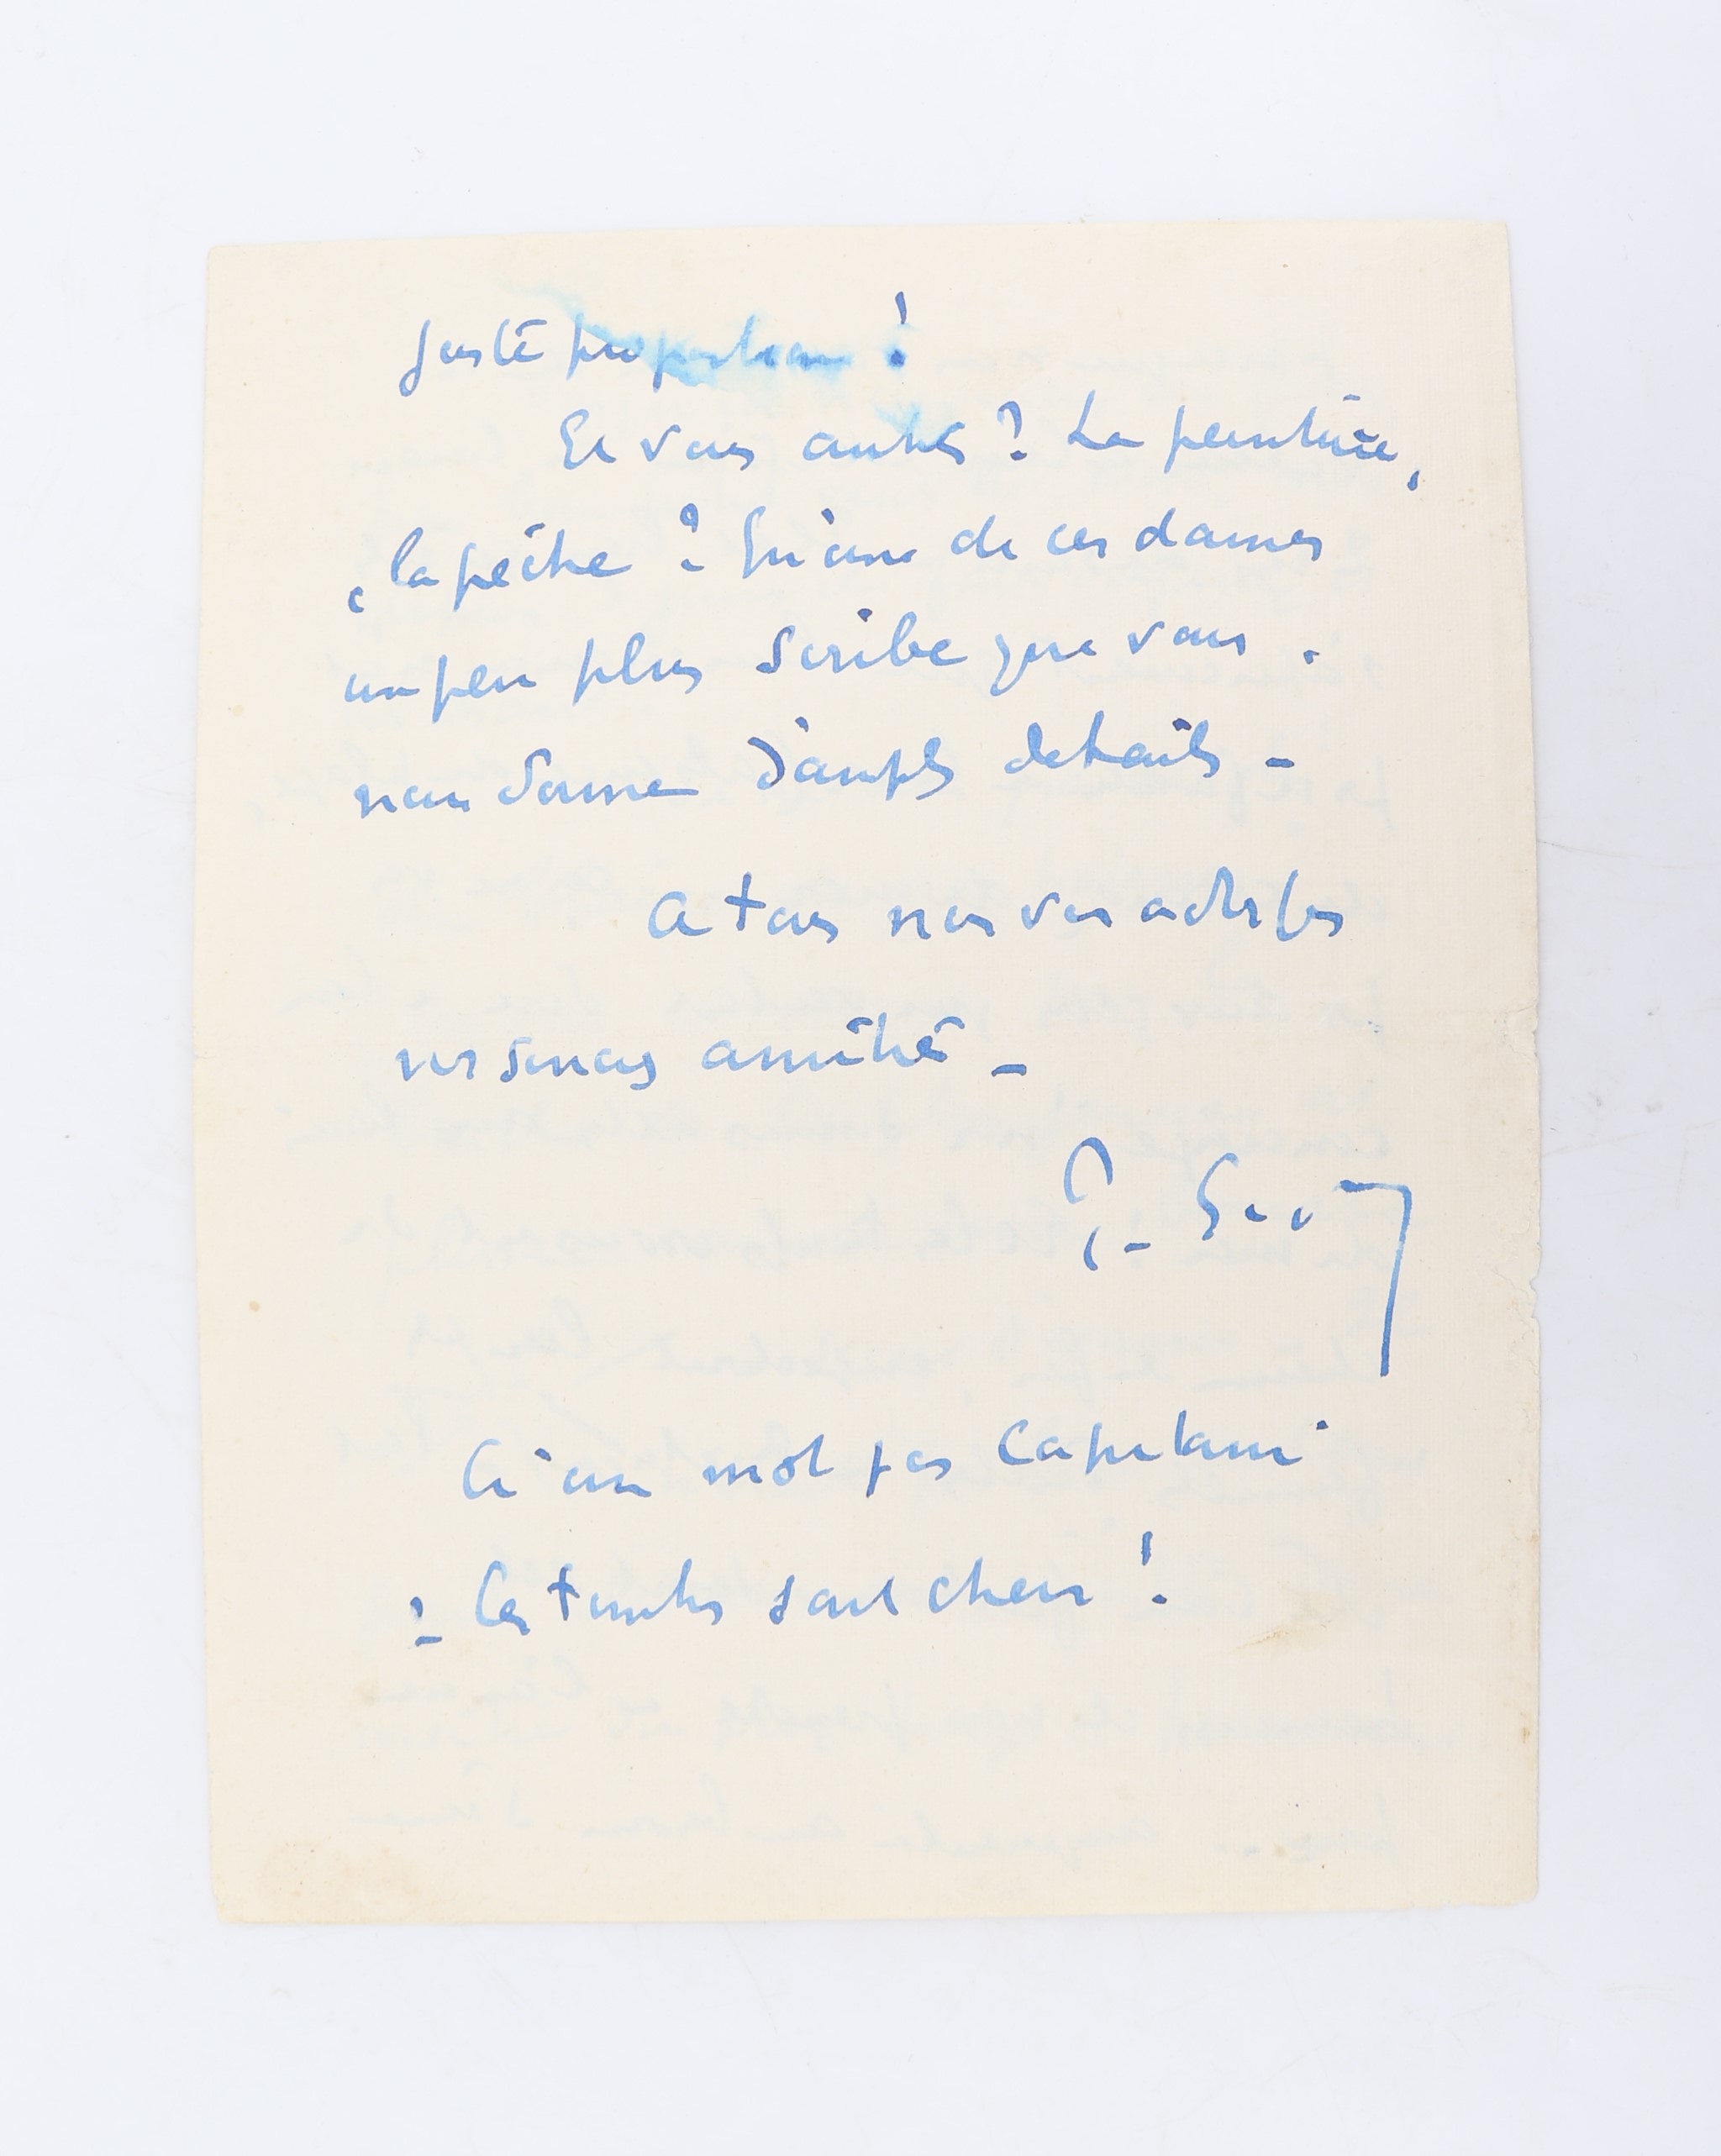 juste proportion !
Et vous autres ? La peinture,
, la pêche ? Qu'une de ces dames
un peu plus scribe que vous
nous donne d'amples détails –
A tous nos vos
nos amitiés –
un mot pas Capitaine
? Les timbres sont chers !